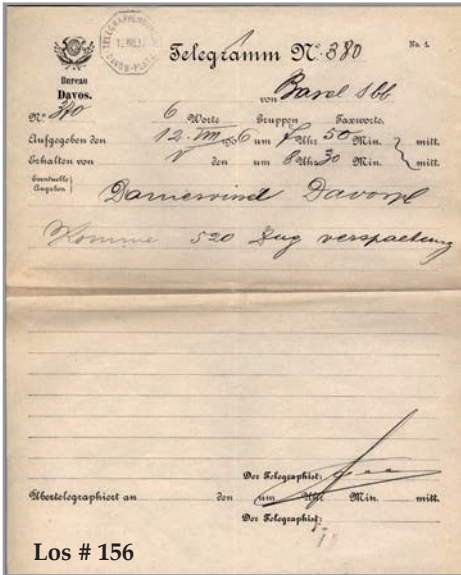 TELEGRAPHENBUREAU
DAVOS-PLATZ
Telegramm Nº 380
No. 4.
Bureau
Davos.
von Basel Sbb
Nº 370 6 Worte Gruppen Taxworte.
Aufgegeben den 12. VIII um 7 Uhr 50 Min. mitt.
Erhalten von den um 8 Uhr 30 Min. mitt.
Eventuelle
Angaben
Davospl
Komme 520 Zug verspaetung
Der Telegraphist:
Übertelegraphiert an den um Uhr Min. mitt.
Der Telegraphist:
Los # 156